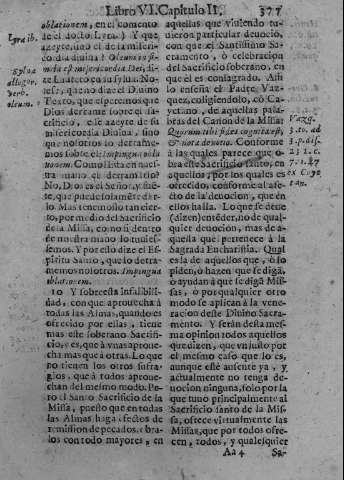 Libro VI. Capitulo II. 377
oblationem, en el comento
de el docto Lyra.) Y que
azeyte, sino el de la miseri-
cordia diuina?
mista est misericordia Dei, di-
Dios derrame sobre el sa-
crificio, el azeyte de su
misericordia Diuina, sino
que nosotros lo derrame-
mos sobre el. Impingui obla-
tionem. Como? està en nues-
tra mano el derramarlo?
No, Dios es el Señor, y fuen-
te, que puede solamẽte dar-
lo. Mas tenemoslo tan cier-
to, por medio del Sacrificio
de la Missa, como si dentro
de nuestra mano lo tuuies-
semos. Y por esso dize el Es-
piritu Santo, que lo derra-
memos nosotros. Impingua
oblationem.
10 Y sobre esta infalibili-
dad, con que aprouecha à
todas las Almas, quando es
ofrecido por ellas, tiene
mas este soberano Sacrifi-
cio, y es, que à vnas aproue-
cha mas que à otras. Lo que
no tienen los otros sufra-
gios, que à todos aproue-
chan del mesmo modo. Pe-
ro el Santo Sacrificio de la
Missa, puesto que en todas
las Almas haga efectos de
remission de pecados, obra-
los con todo mayores, en
aquellas que viuiendo tu-
uieron particular deuociõ,
con que el Santissimo Sa-
cramento, ò celebracion
del Sacrificio soberano, en
que èl es consagrado. Assi
lo enseña el Padre Vaz-
quez, coligiendolo, cõ Ca-
yetano, de aquellas pala-
bras del Canon de la Missa:
Quorum tibi fides cognita est,
& nota deuotio. Conforme
à las quales parece que o-
bra este Sacrificio santo, en
aquellos, por los quales es
ofrecido, conforme al afec-
to de la deuocion, que en
ellos halla. Lo que se deue
(dizen) entẽder, no de qual-
quier deuocion, mas de a-
quella que pertenece à la
Sagrada Eucharistia. Qual
es la de aquellos que, ò lo
piden, ò hazen que se digã,
ò ayudan à que se digã Mis-
sas, ò por qualquier otro
modo se aplican à la vene-
racion deste Diuino Sacra-
mento. Y seràn desta mes-
ma opinion todos aquellos
que dizen, que vn justo por
el mesmo caso que lo es,
aunque estè ausente ya, y
actualmente no tenga de-
uocion ninguna, solo por la
que tuuo principalmente al
Sacrificio santo de la Mis-
sa, ofrece virtualmente las
Missas, que por todos ofre-
cen, todos, y qualesquier
Aa 4 Sa-
Lyra ib.
Vazq.
3. to. ad
3. p. dis.
ex Caye
tan.